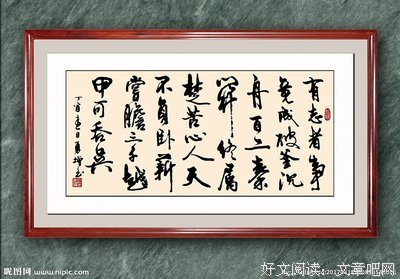 有志者事
竟成破釜沉
舟百二秦
關終屬
楚苦心人天
不負臥薪
嘗膽三千越
甲可吞吳
丁酉春日
昵图网 www.nipic.com
好文阅读：文章吧网